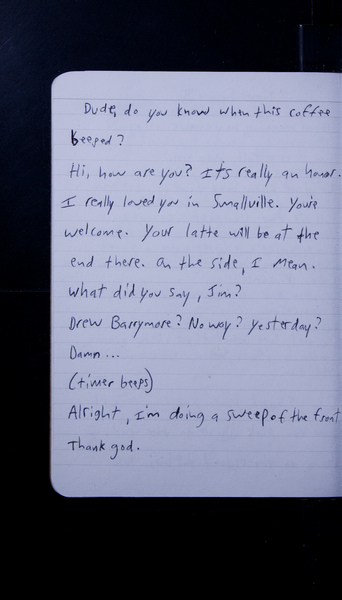 Dude, do you know when this coffee
beeped?
Hi, how are you? It's really an honor.
I really loved you in Smallville. You're
welcome. Your latte will be at the
end there. On the side, I mean.
What did you say, Jim?
Drew Barrymore? No way? Yesterday?
Damn...
(timer beeps)
Alright, I'm doing a sweep of the front
Thank god.